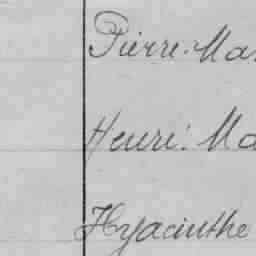 Pierre. Ma
Henri. Ma
Hyacinthe